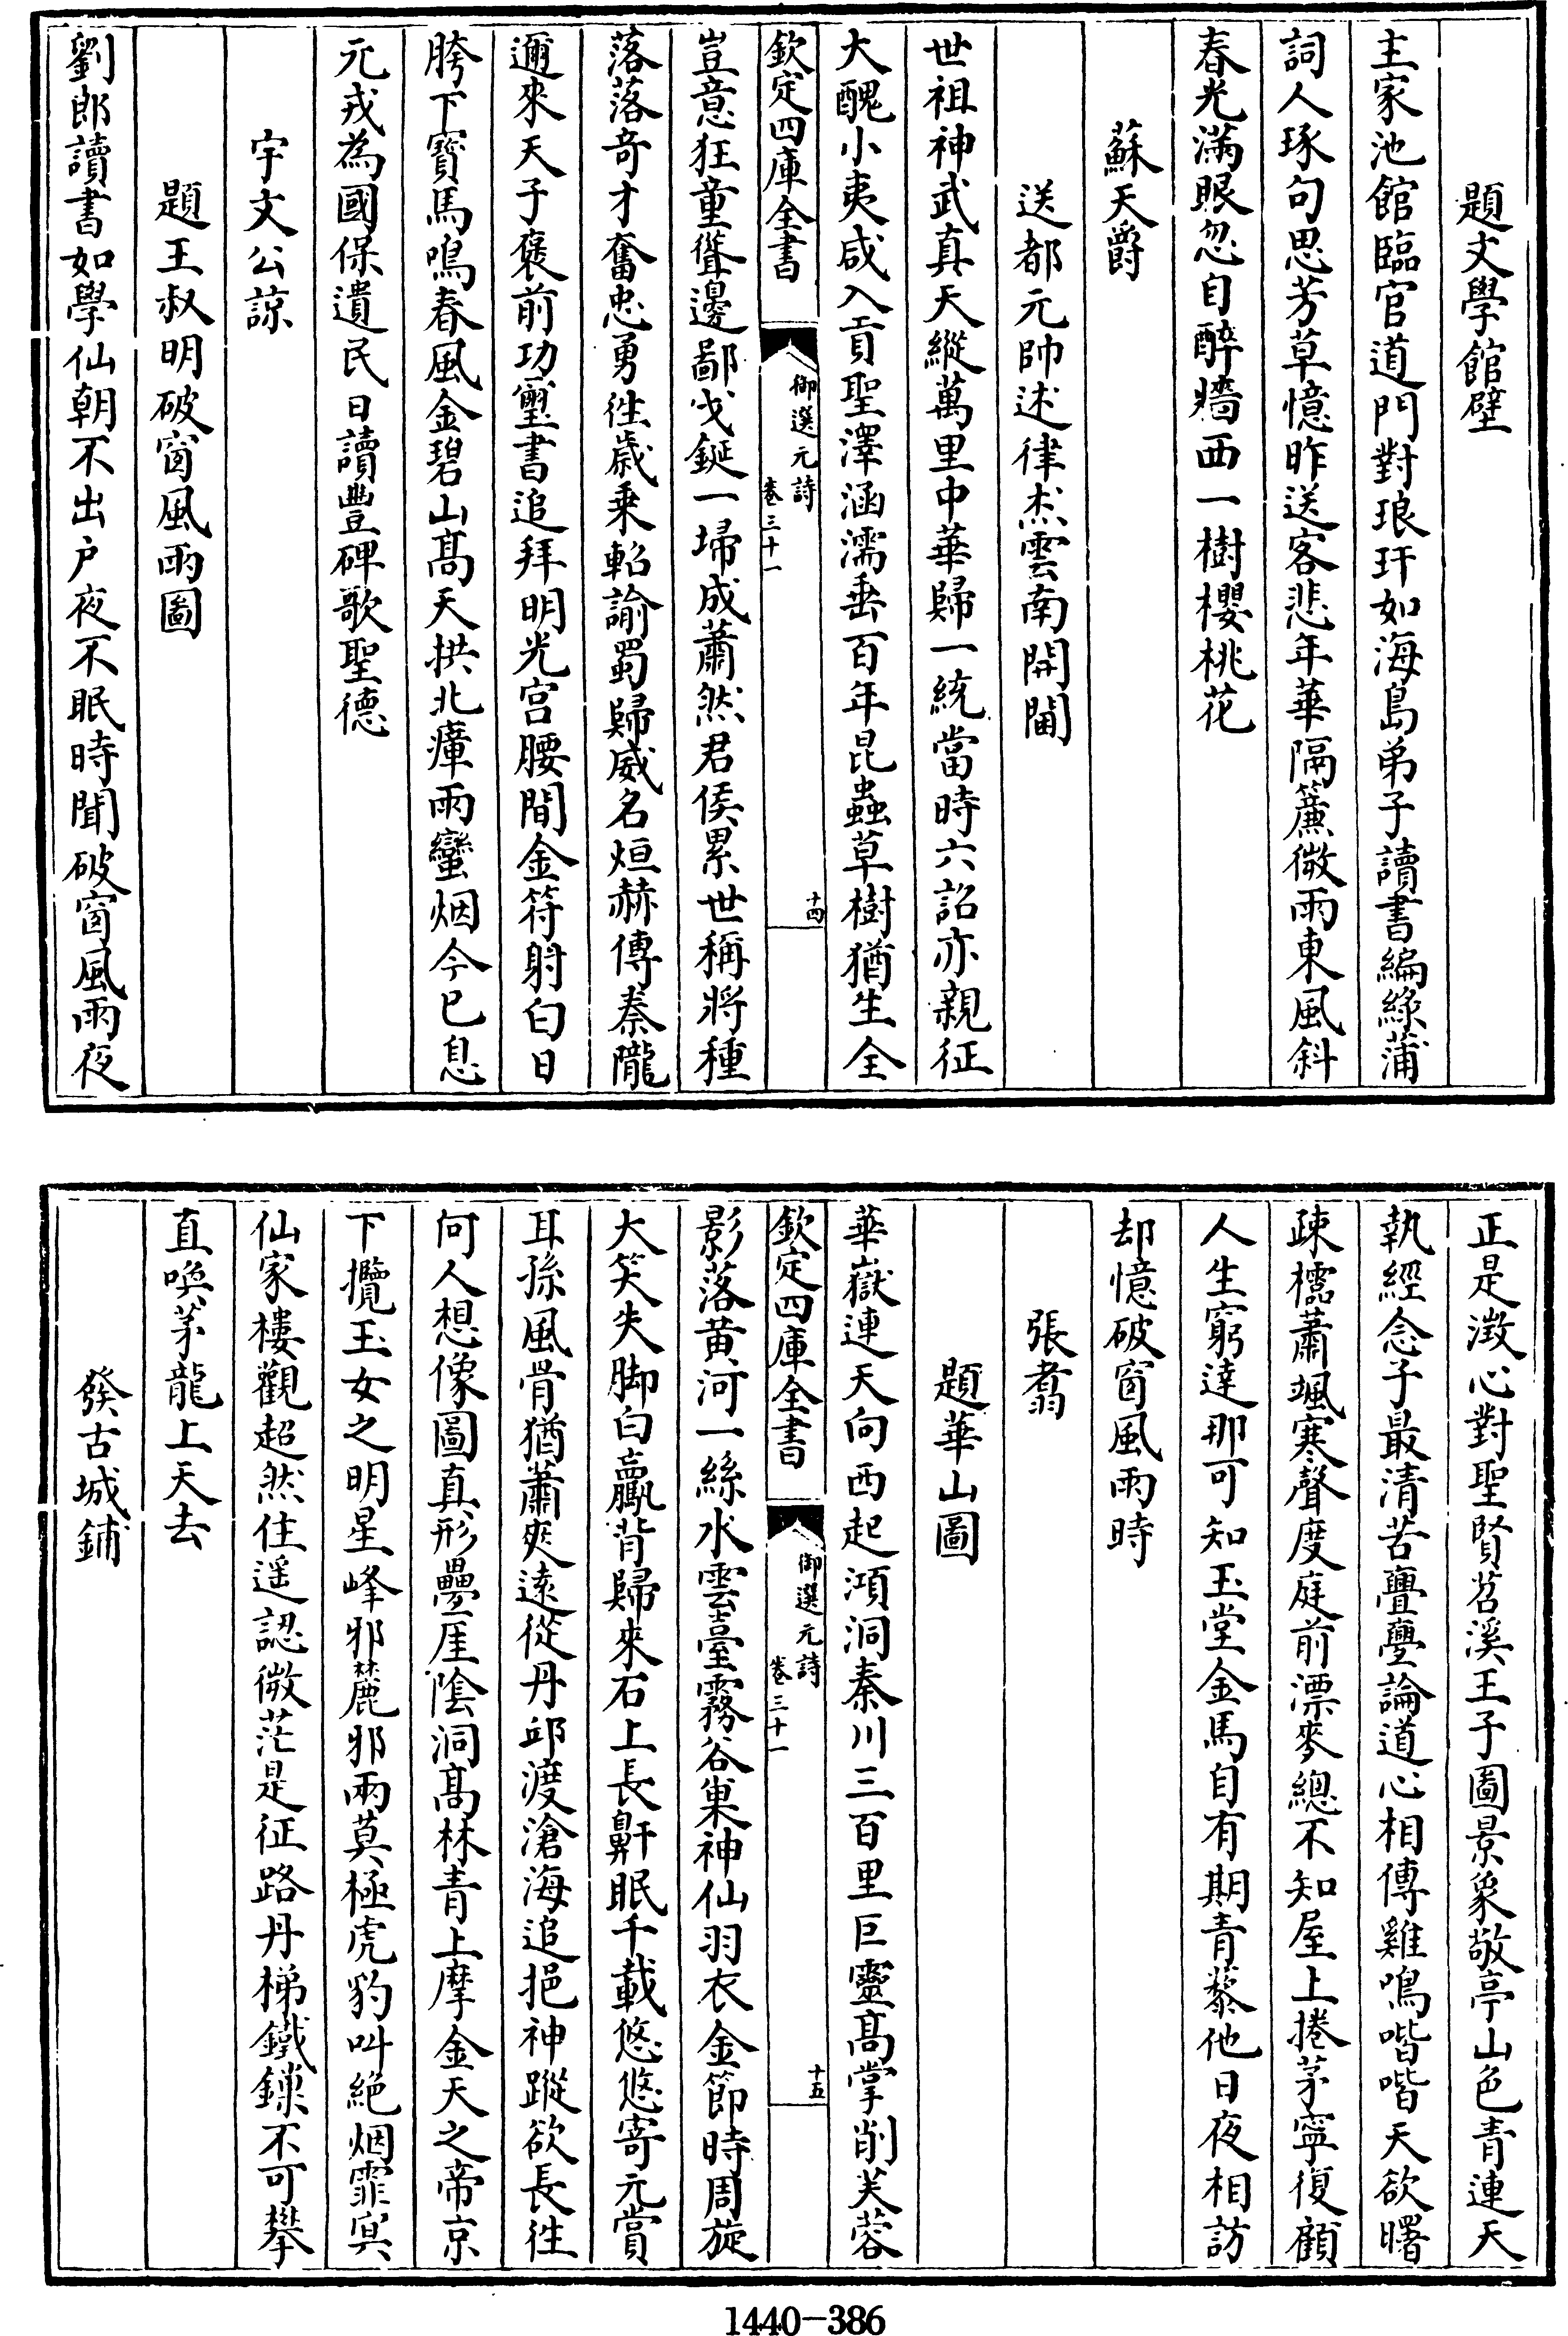 題文學館壁
主家池館臨官道門對琅玕如海島弟子讀書編綠蒲
詞人琢句思芳草憶昨送客悲年華隔簾微雨東風斜
春光滿眼忽自醉牆西一樹櫻桃花
蘇天爵
送都元帥述律杰雲南開閫
世祖神武真天縱萬里中華歸一統當時六詔亦親征
大醜小夷咸入貢聖澤涵濡垂百年昆蟲草樹猶生全
欽定四庫全書
御選元詩
卷三十一
十四
豈意狂童聳邊鄙戈鋋一埽成蕭然君侯累世稱將種
落落奇才奮忠勇徃歲乗軺諭蜀歸威名烜赫傳秦隴
邇來天子褒前功璽書追拜明光宮腰間金符射白日
胯下寳馬鳴春風金碧山髙天拱北瘴雨蠻烟今已息
元戎為國保遺民日讀豐碑歌聖德
宇文公諒
題王叔明破窗風雨圖
劉郎讀書如學仙朝不出户夜不眠時聞破窗風雨夜
正是澂心對聖賢苕溪王子圖景象敬亭山色青連天
執經念子最清苦亹亹論道心相傳雞鳴喈喈天欲曙
疎櫺蕭颯寒聲度庭前漂麥總不知屋上捲茅寧復顧
人生窮達那可知玉堂金馬自有期青藜他日夜相訪
却憶破窗風雨時
張翥
題華山圖
華嶽連天向西起澒洞秦川三百里巨靈髙掌削芙蓉
欽定四庫全書
御選元詩
卷三十一
十五
影落黄河一絲水雲臺霧谷巢神仙羽衣金節時周旋
大笑失脚白驘背歸來石上長鼾眠千載悠悠寄元賞
耳孫風骨猶蕭爽逺從丹邱渡滄海追挹神蹤欲長徃
何人想像圖真形疊厓陰洞髙林青上摩金天之帝京
下攬玉女之明星峰邪麓邪兩莫極虎豹叫絶烟霏㝠
仙家樓觀超然住遥認微茫是征路丹梯鐵鏁不可攀
直喚茅龍上天去
發古城鋪
1440-386